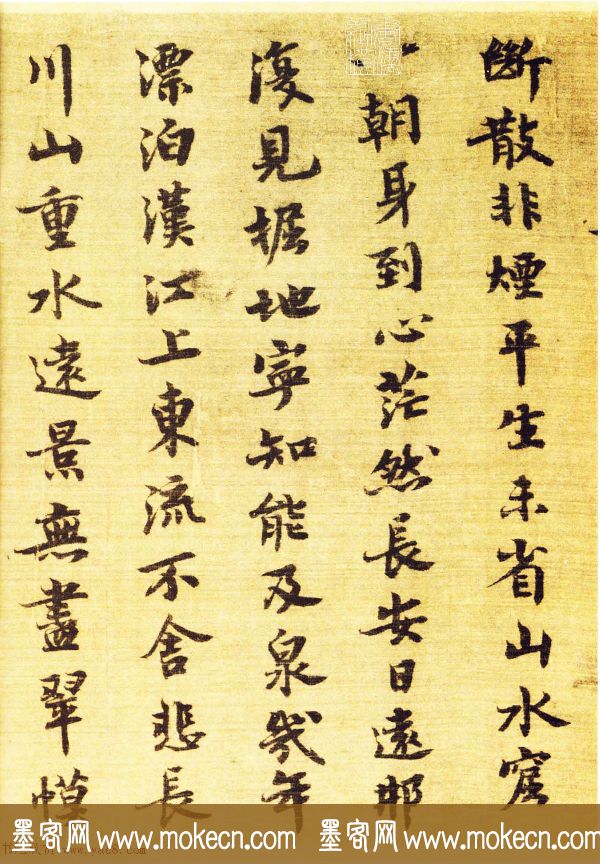 斷散非煙平生未省山水窟
一朝身到心茫然長安日遠那
復見掘地寧知能及泉幾年
漂泊漢江上東流不舍悲長
川山重水遠景無盡翠幙
墨客网 www.mokecn.com 墨客网 www.mokecn.com